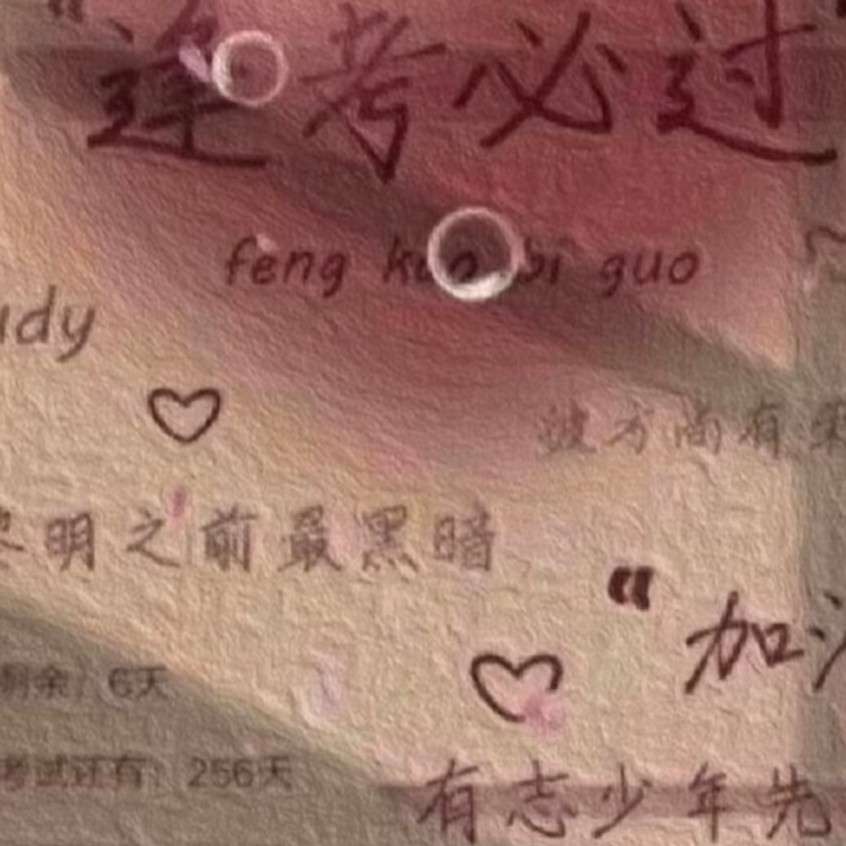 “逢考必过”
feng kao bi guo
udy
彼方尚有荣
黎明之前最黑暗
“加油
剩余：6天
考试还有：256天
有志少年先